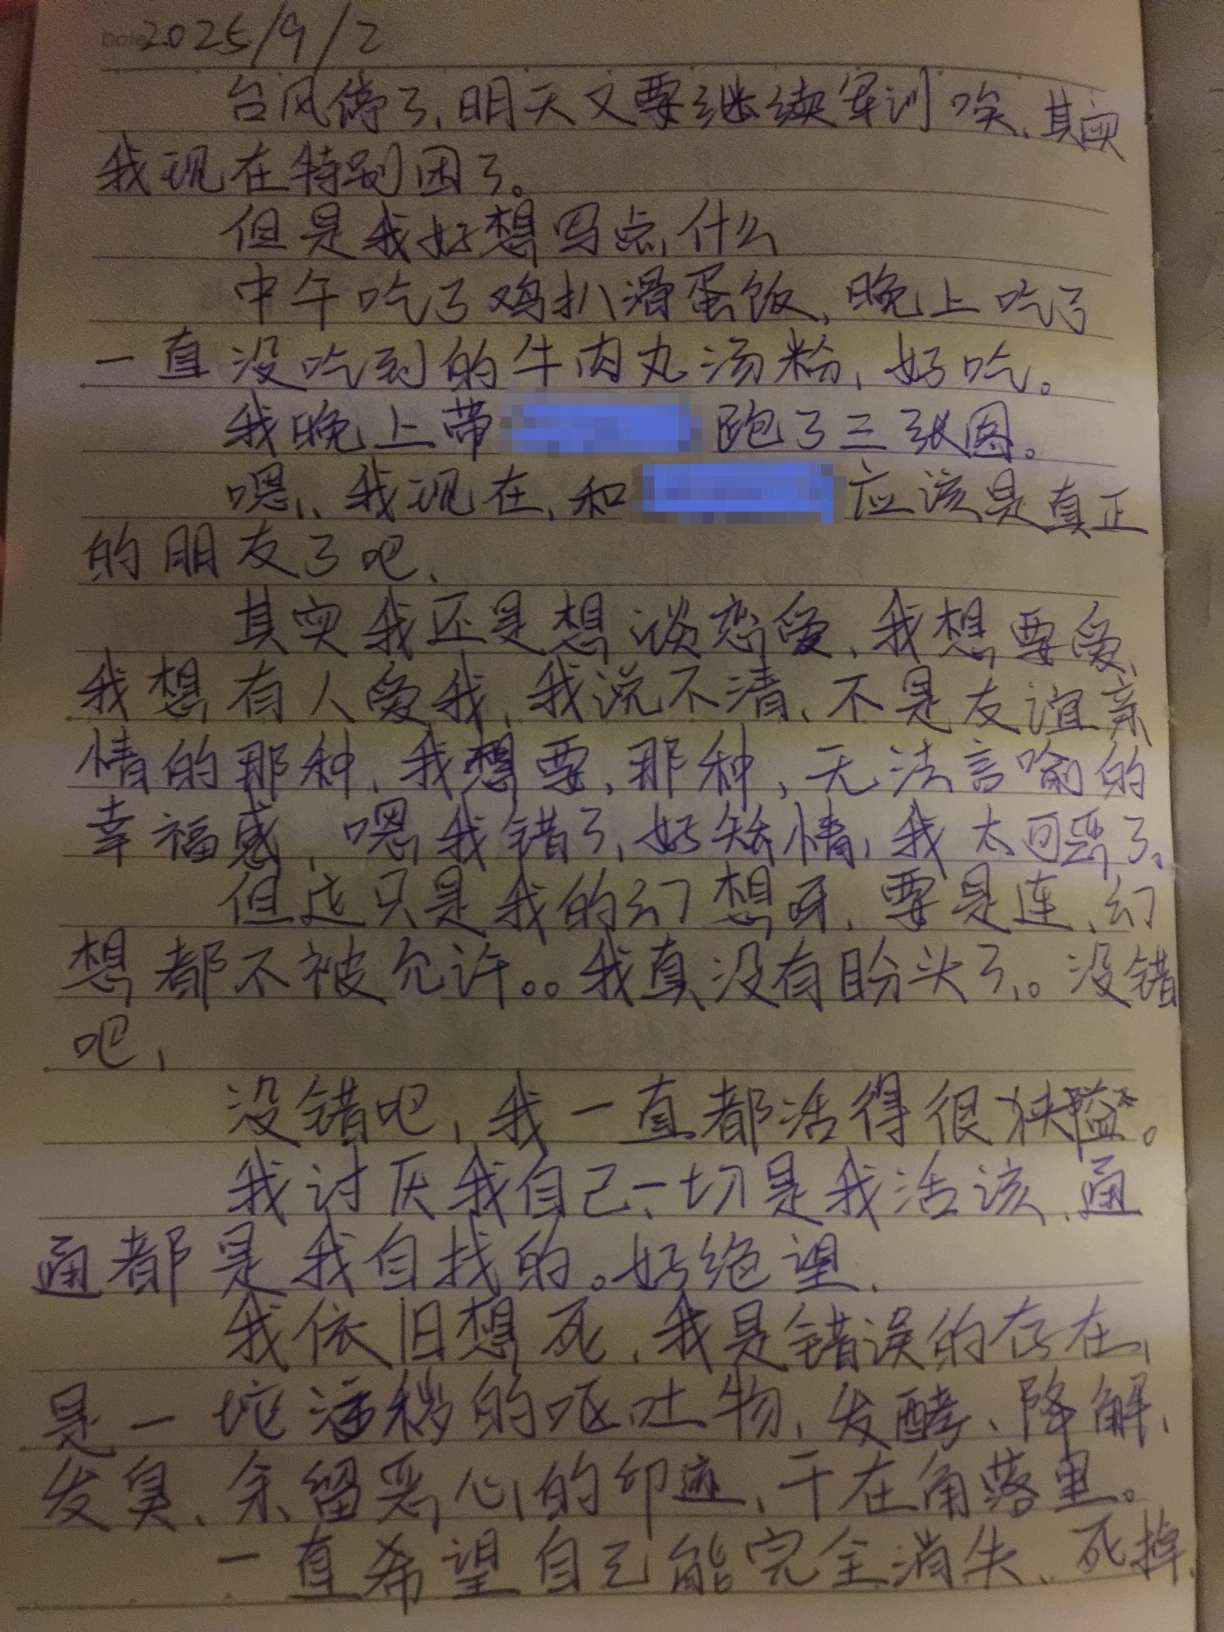 2025/9/2
台风停了、明天又要继续军训唉、其实
我现在特别困了。
但是我好想写点什么
中午吃了鸡扒滑蛋饭、晚上吃了
一直没吃到的牛肉丸汤粉、好吃。
我晚上带 跑了三张图。
嗯、我现在、和 应该是真正
的朋友了吧、
其实我还是想谈恋爱、我想要爱、
我想有人爱我、我说不清、不是友谊亲
情的那种、我想要、那种、无法言喻的
幸福感、嗯我错了、好矫情、我太可恶了。
但这只是我的幻想呀、要是连、幻
想都不被允许。。我真没有盼头了。没错
吧、
没错吧、我一直都活得很狭隘。
我讨厌我自己、一切是我活该、通
通都是我自找的。好绝望、
我依旧想死、我是错误的存在、
是一坨污秽的呕吐物、发酵、降解、
发臭、余留恶心的印迹、干在角落里。
一直希望自己能完全消失、死掉、